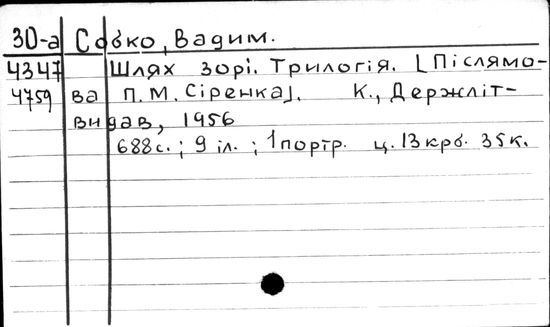 30-а Собко, Вадим.
4347 Шлях зорі. Трилогія. [Післямо-
4759 ва П.М. Сіренка]. К., Держліт-
видав, 1956
688с.; 9 іл.; 1 портр. ц. 13 крб. 35к.